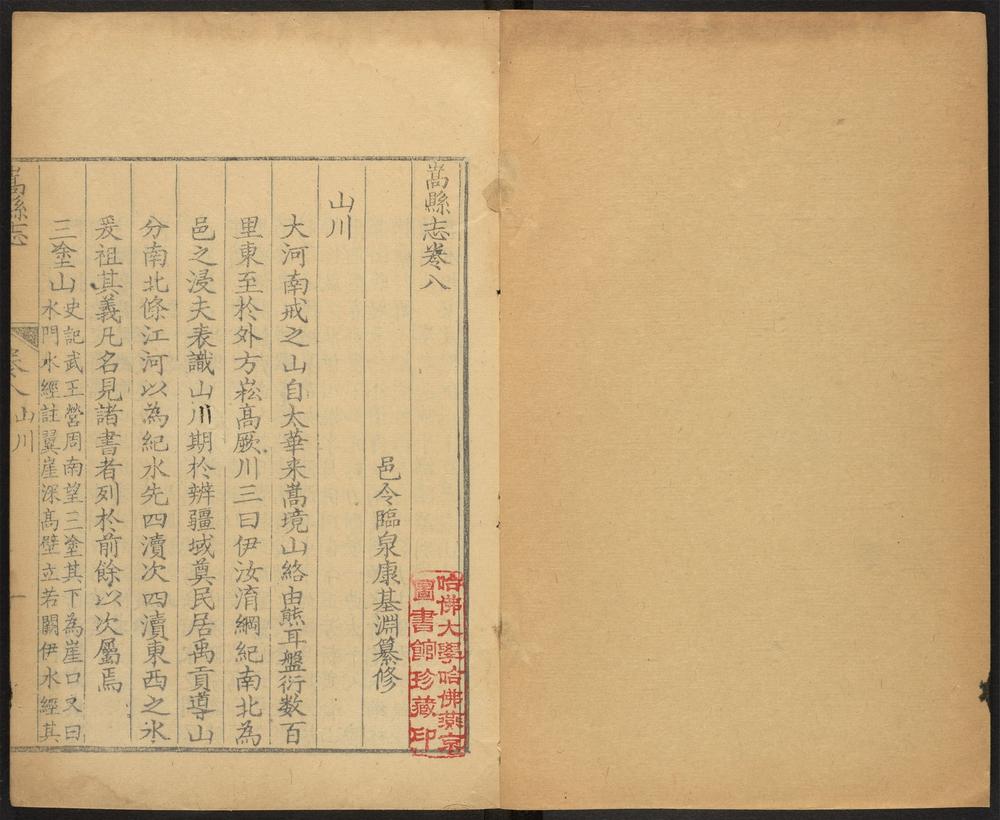 嵩縣志卷八
邑令臨泉康基淵纂修
山川
大河南戒之山自太華来嵩境山絡由熊耳盤衍数百
里東至於外方崧高厥川三曰伊汝淯綱紀南北為
邑之浸夫表識山川期於辨疆域奠民居禹貢導山
分南北條江河以為紀水先四瀆次四瀆東西之水
爰祖其義凡名見諸書者列於前餘以次屬焉
三塗山史記武王營周南望三塗其下為崖口又曰
水門水經註翼崖深高壁立若闕伊水經其
嵩縣志
卷八山川
一
哈佛大學哈佛燕京
圖書館珍藏印